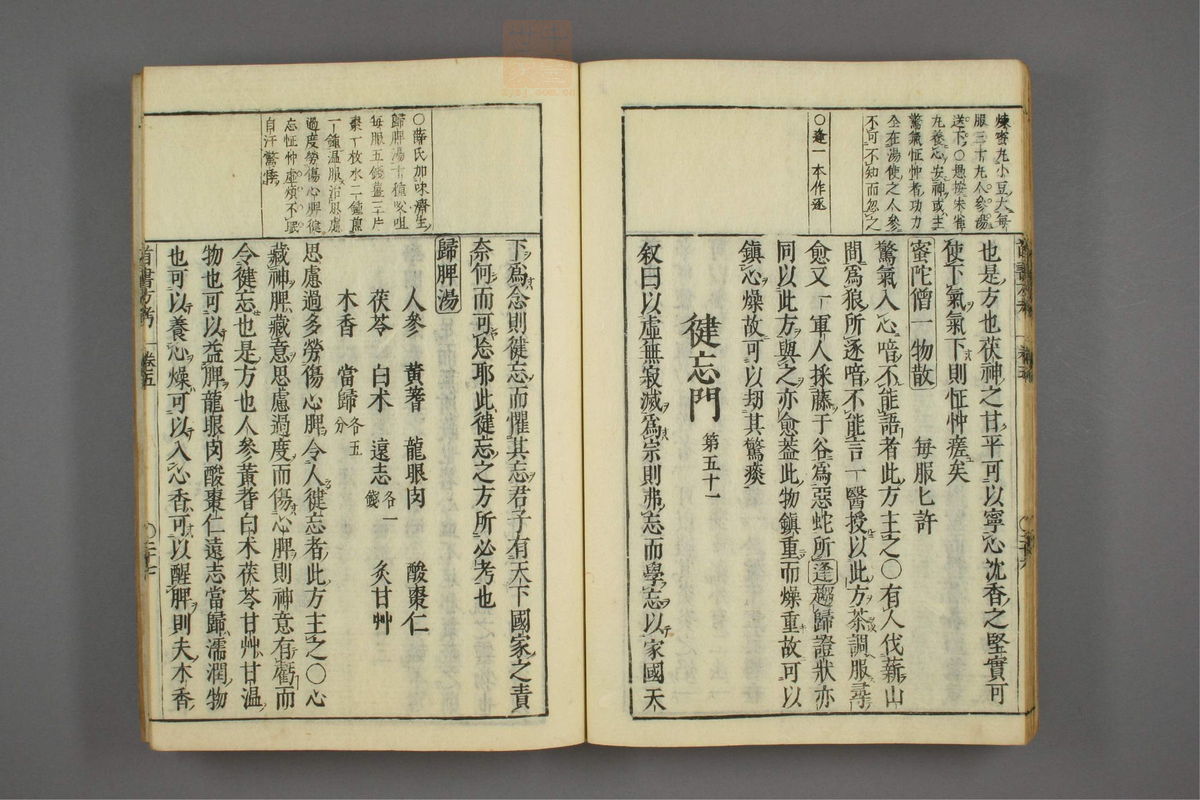 煉蜜丸小豆大每
服三十丸人參湯
送下〇懸按朱雀
丸養心安神或主
驚氣怔忡者功力
全在湯使之人參
不可不知而忽之
〇逢一本作逐
也是方也茯神之甘平可以寧心沈香之堅實可
使下氣氣下則怔忡瘥矣
蜜陀僧一物散 每服匕許
驚氣入心瘖不能語者此方主之〇有人伐薪山
間爲狼所逐喑不能言一醫授以此方茶調服尋
愈又一軍人採藤于谷爲惡蛇所逢趨歸證狀亦
同以此方與之亦愈蓋此物鎮重而燥重故可以
鎮心燥故可以劫其驚痰
健忘門 第五十一
叙曰以虛無寂滅爲宗則弗忘而學忘以家國天
〇薛氏加味濟生
歸脾湯十種㕮咀
每服五錢薑三片
棗一枚水二鍾煎
一鍾溫服治思慮
過度勞傷心脾健
忘怔忡虛煩不眠
自汗驚悸
下爲念則健忘而懼其忘君子有天下國家之責
奈何而可忘耶此健忘之方所必考也
歸脾湯
人參 黃蓍 龍眼肉 酸棗仁
茯苓 白朮 遠志各一錢 炙甘艸
木香 當歸各五分
思慮過多勞傷心脾令人健忘者此方主之〇心
藏神脾藏意思慮過度而傷心脾則神意有虧而
令健忘也是方也人參黃蓍白朮茯苓甘艸甘温
物也可以益脾龍眼肉酸棗仁遠志當歸濡潤物
也可以養心燥可以入心香可以醒脾則夫木香
首書方考 卷五